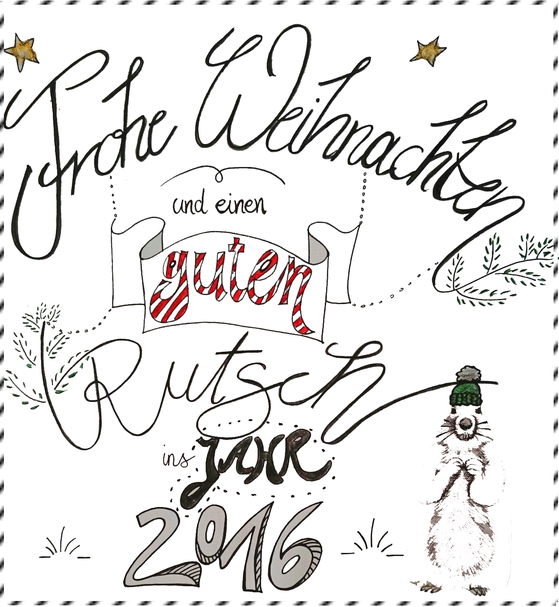 Frohe Weihnachten
und einen
guten
Rutsch
ins JAHR
2016